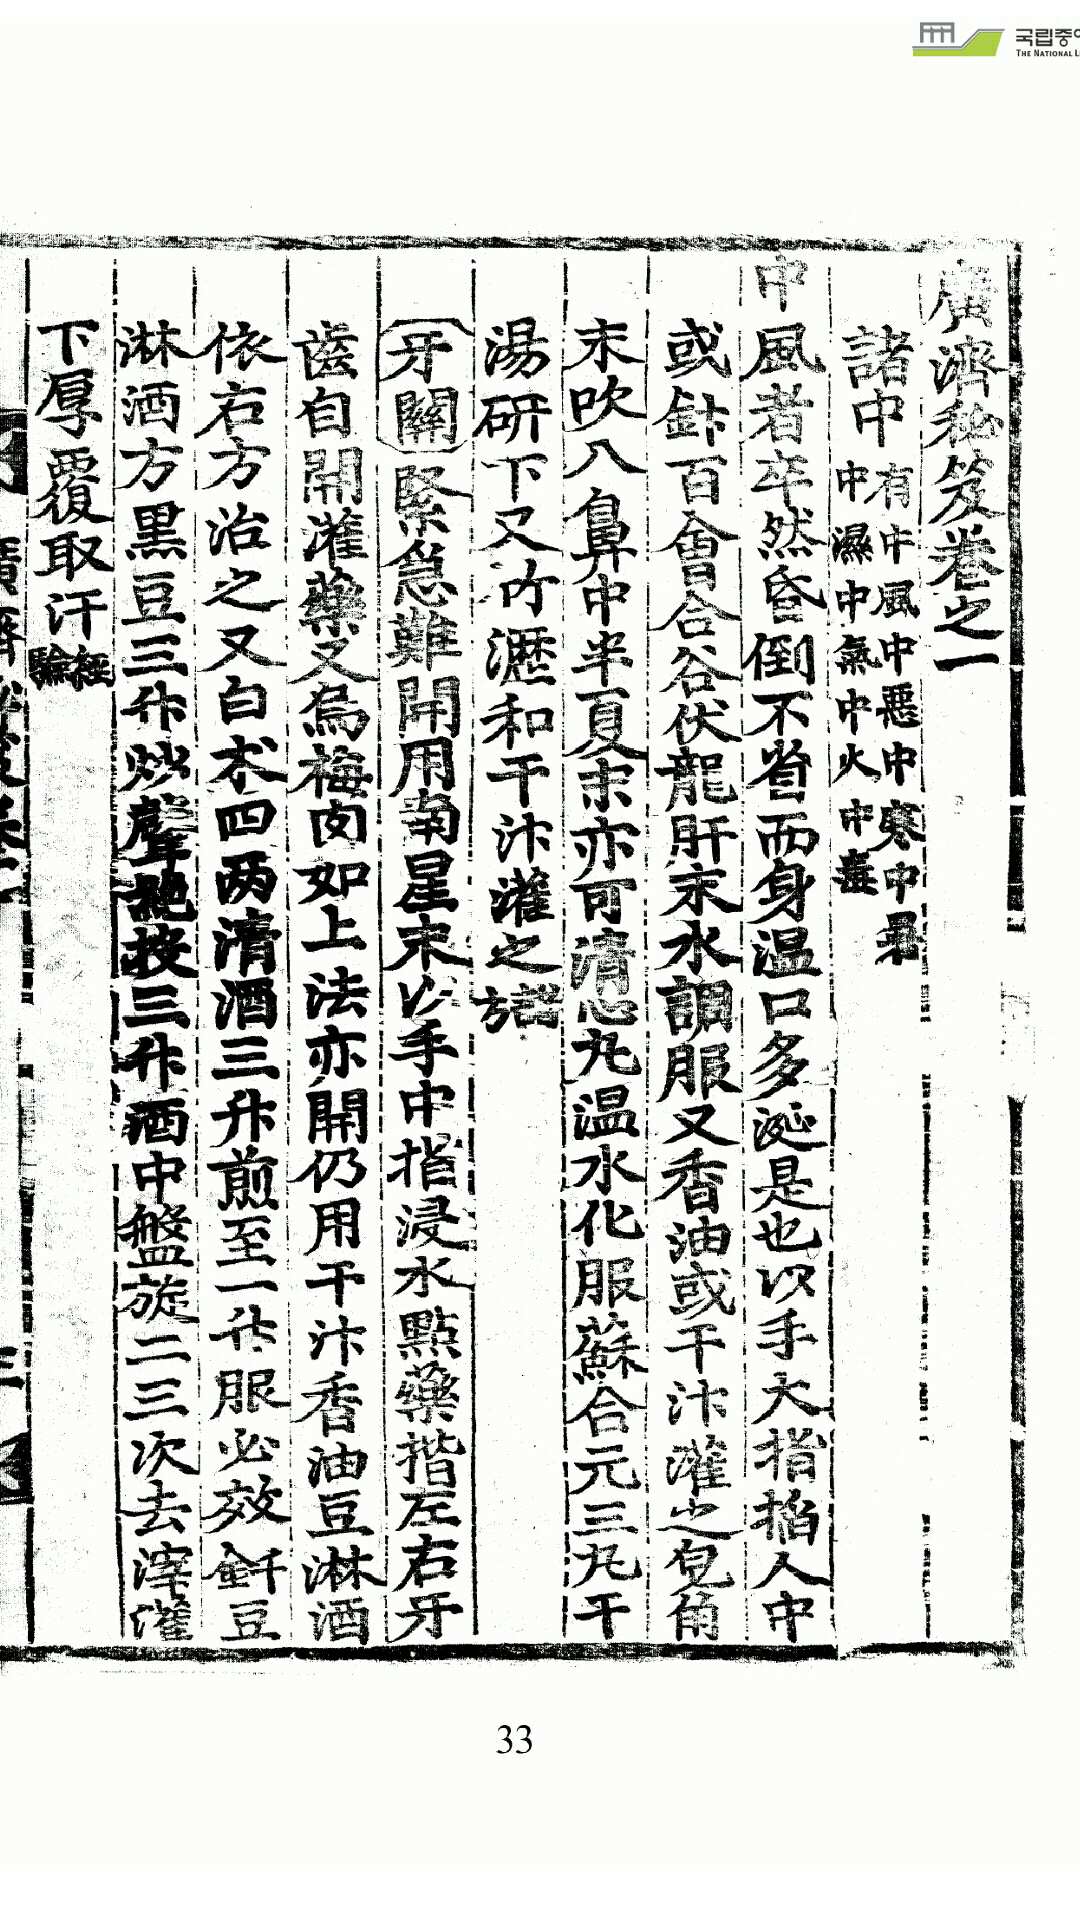 국립중
THE NATIONAL L
廣濟秘笈卷之一
諸中 有中風中惡中寒中暑
中濕中氣中火中毒
中風者卒然昏倒不省而身温口多涎是也以手大指掐人中
或針百會合谷伏龍肝末水調服又香油或干汁灌之皂角
末吹入鼻中半夏末亦可淸心丸温水化服蘇合元三丸干
湯研下又竹瀝和干汁灌之諸方
牙關緊急難開用南星末以手中指浸水點藥揩左右牙
齒自開灌藥又烏梅肉如上法亦開仍用干汁香油豆淋酒
依右方治之又白朮四两清酒三升煎至一升服必效
豆
淋酒方黑豆三升炒聲絶按三升酒中盤旋二三次去滓灌
下厚覆取汗經驗
廣濟秘笈卷一
三
33